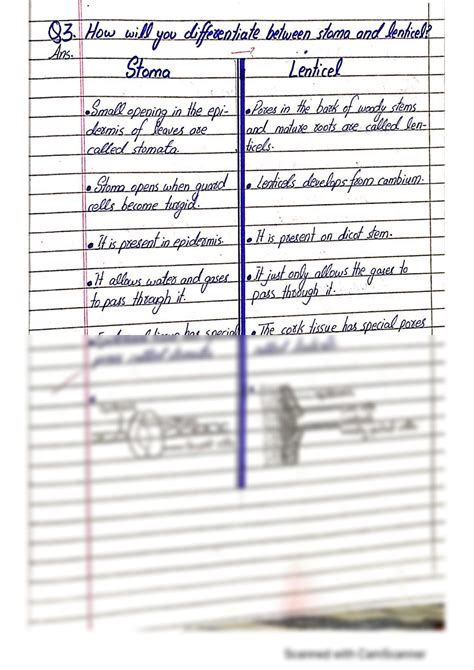 Q3. How will you differentiate between stoma and lenticel?
Ans.
Stoma
• Small opening in the epi-
dermis of leaves are
called stomata.
• Stoma opens when guard
cells become turgid.
• It is present in epidermis.
• It allows water and gases
to pass through it.
has special
Lenticel
• Pores in the bark of woody stems
and mature roots are called len-
ticels.
• Lenticels develops from cambium.
• It is present on dicot stem.
• It just only allows the gases to
pass through it.
• The cork tissue has special pores
called
Scanned with CamScanner